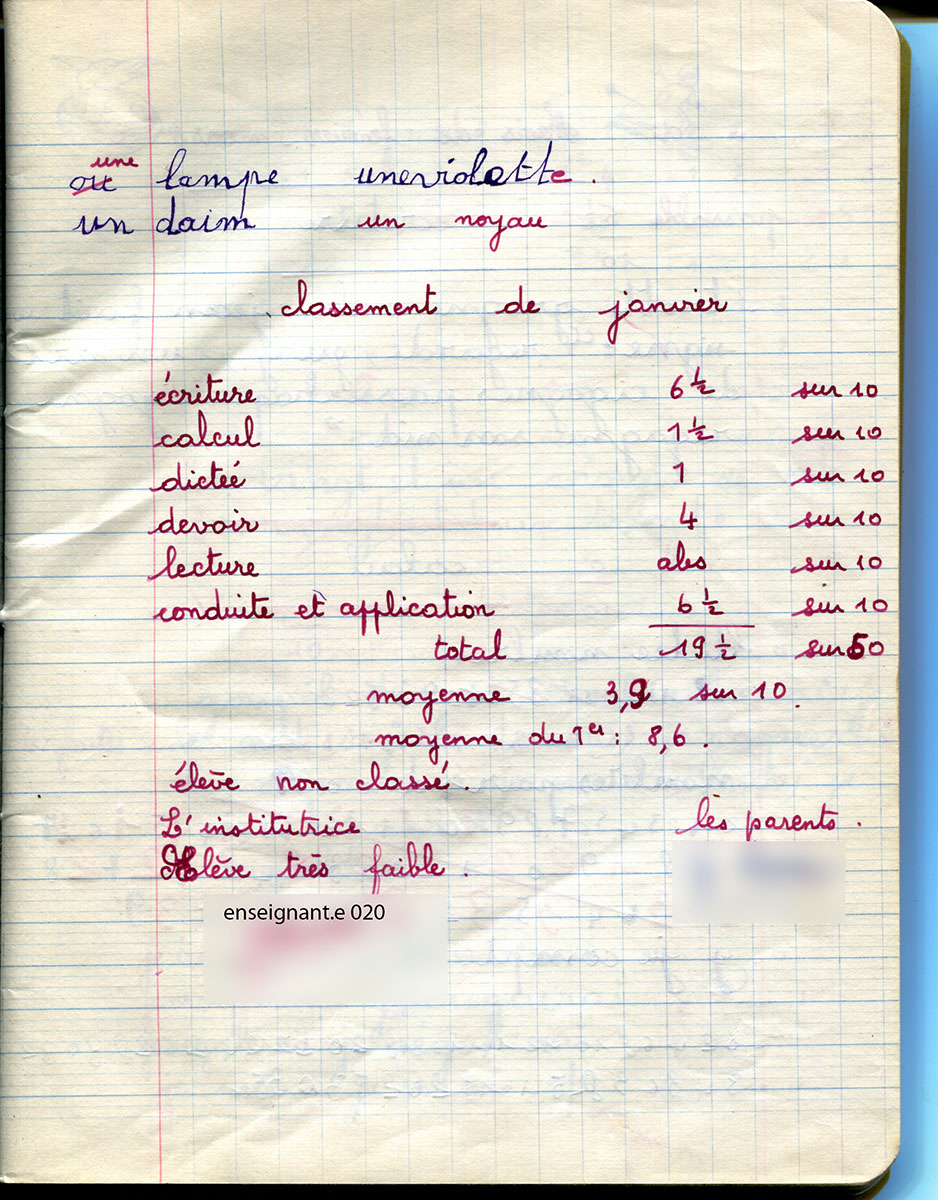 une
ou lampe uneviolette.
un daim un noyau
classement de janvier
écriture 6 ½ sur 10
calcul 1 ½ sur 10
dicteé 1 sur 10
devoir 4 sur 10
lecture abs sur 10
conduite et application 6 ½ sur 10
total 19 ½ sur 50
moyenne 3,9 sur 10.
moyenne du 1er : 8,6.
élève non classé.
L'institutrice lès parents.
élève très faible.
enseignant.e 020